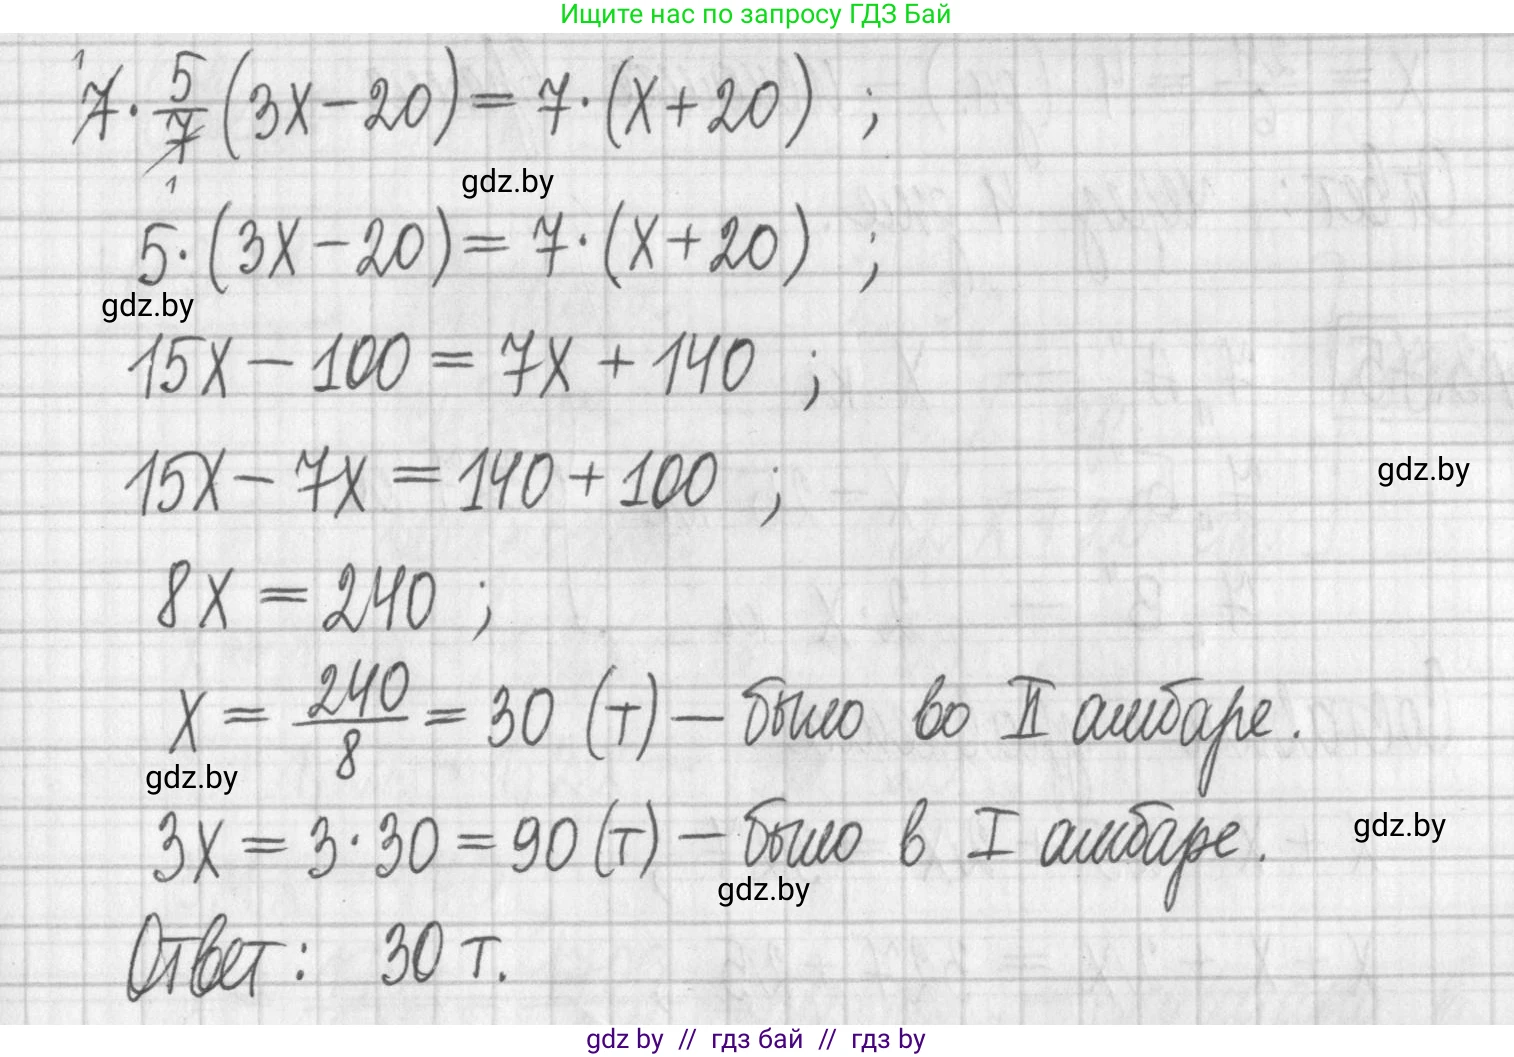 Ищите нас по запросу ГДЗ Бай
1
7 · 5/7 (3x − 20) = 7 · (x + 20) ;
1
gdz.by
5 · (3x − 20) = 7 · (x + 20) ;
gdz.by
15x − 100 = 7x + 140 ;
15x − 7x = 140 + 100 ;
gdz.by
8x = 240 ;
x = 240/8 = 30 (т) — было во II амбаре.
gdz.by
3x = 3 · 30 = 90 (т) — было в I амбаре.
gdz.by
gdz.by
Ответ: 30 т.
gdz by // гдз бай // гдз by